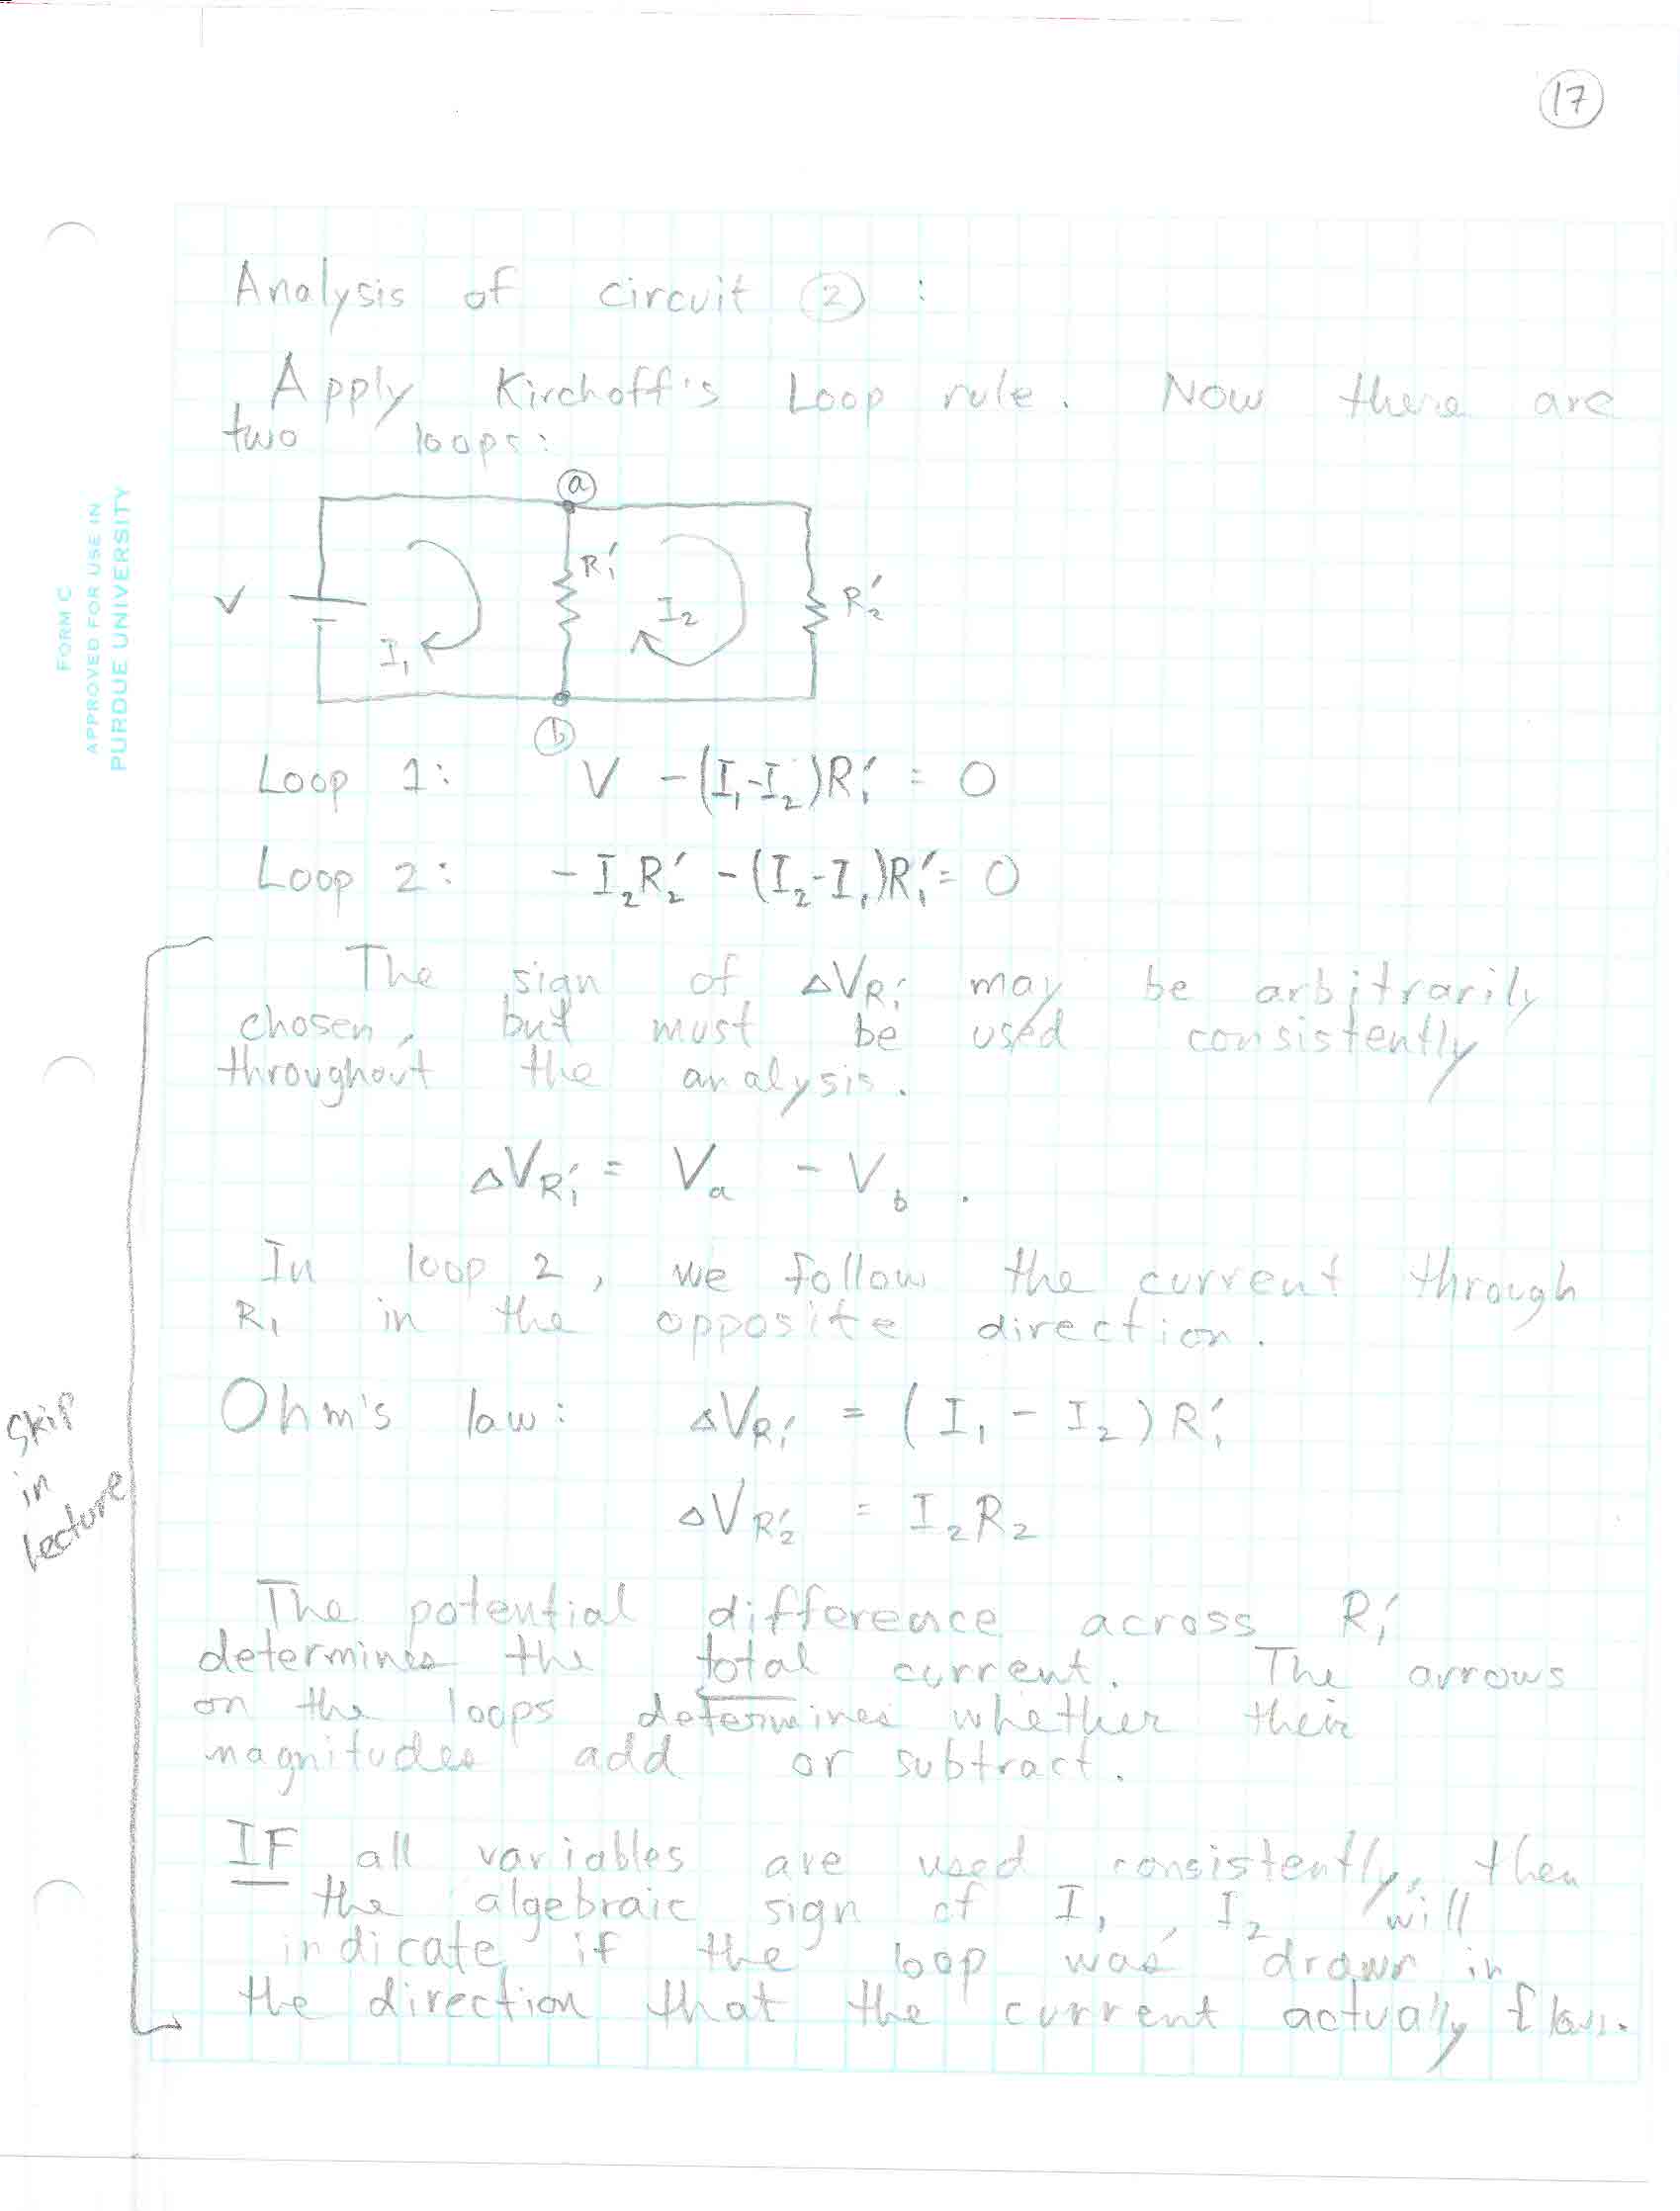 17
Analysis of circuit 2 :
Apply Kirchoff's Loop rule. Now there are
two loops:
a
R₁′
V
I₂
R₂′
I₁
b
FORM C
APPROVED FOR USE IN
PURDUE UNIVERSITY
Loop 1: V - (I₁-I₂)R₁′ = 0
Loop 2: - I₂R₂′ - (I₂-I₁)R₁′ = 0
The sign of ΔV_R₁′ may be arbitrarily
chosen, but must be used consistently
throughout the analysis.
ΔV_R₁′ = Vₐ - V_b .
In loop 2, we follow the current through
R₁ in the opposite direction.
Ohm's law: ΔV_R₁′ = (I₁ - I₂) R₁′
ΔV_R₂′ = I₂R₂
Skip
in
Lecture
The potential difference across R₁′
determines the total current. The arrows
on the loops determines whether their
magnitudes add or subtract.
IF all variables are used consistently, then
the algebraic sign of I₁, I₂ will
indicate if the loop was drawn in
the direction that the current actually flows.